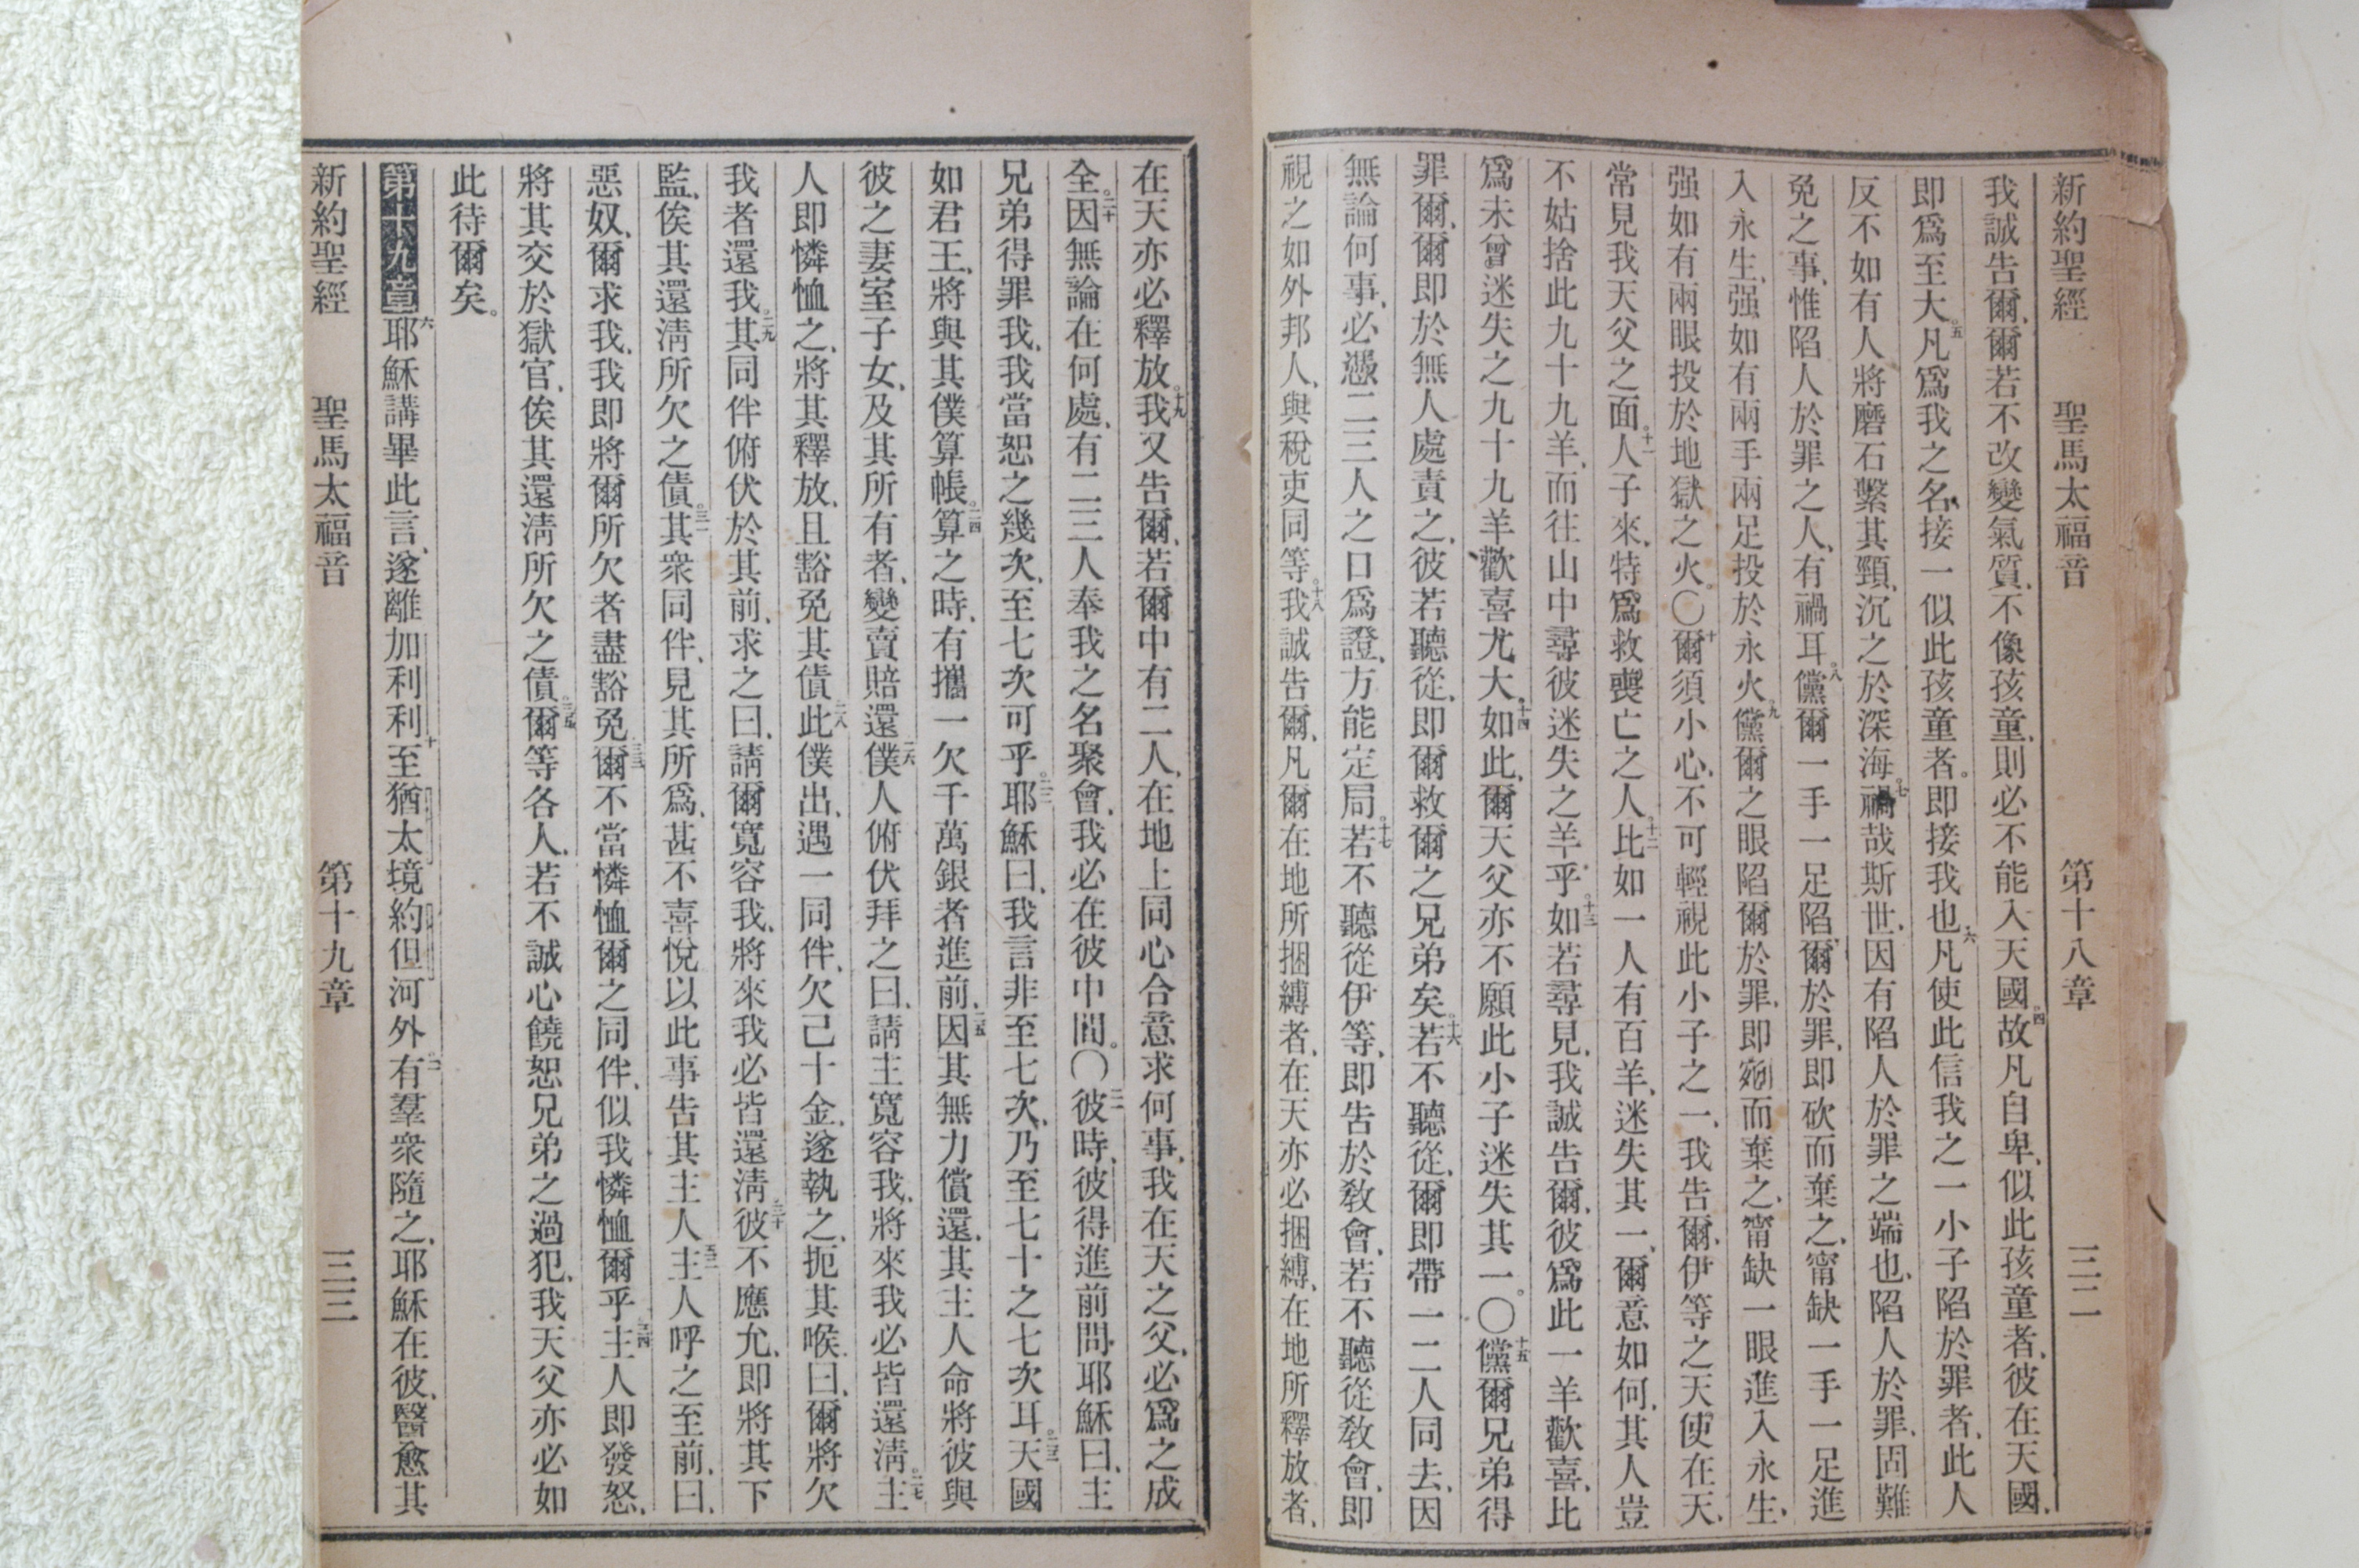 新約聖經 聖馬太福音 第十八章 三二
我誠告爾、爾若不改變氣質、不像孩童、則必不能入天國。四故凡自卑、似此孩童者、彼在天國、
即爲至大。五凡爲我之名、接一似此孩童者。即接我也。六凡使此信我之一小子陷於罪者、此人
反不如有人將磨石繫其頸、沉之於深海。七禍哉斯世、因有陷人於罪之端也、陷人於罪、固難
免之事、惟陷人於罪之人、有禍耳。八儻爾一手一足陷爾於罪、即砍而棄之、甯缺一手一足進
入永生、强如有兩手兩足投於永火。九儻爾之眼陷爾於罪、即剜而棄之、甯缺一眼進入永生、
强如有兩眼投於地獄之火。〇十爾須小心、不可輕視此小子之一、我告爾、伊等之天使在天、
常見我天父之面。十一人子來、特爲救喪亡之人。十二比如一人有百羊、迷失其一、爾意如何、其人豈
不姑捨此九十九羊、而往山中尋彼迷失之羊乎。十三如若尋見、我誠告爾、彼爲此一羊歡喜、比
爲未曾迷失之九十九羊、歡喜尤大。十四如此、爾天父亦不願此小子迷失其一。〇十五儻爾兄弟得
罪爾、爾即於無人處責之、彼若聽從、即爾救爾之兄弟矣。十六若不聽從、爾即帶一二人同去、因
無論何事、必憑二三人之口爲證、方能定局。十七若不聽從伊等、即告於敎會、若不聽從敎會、即
視之如外邦人、與稅吏同等。十八我誠告爾、凡爾在地所捆縛者、在天亦必捆縛、在地所釋放者、
在天亦必釋放。十九我又告爾、若爾中有二人、在地上同心合意求何事、我在天之父、必爲之成
全。二十因無論在何處、有二三人奉我之名聚會、我必在彼中間。〇二一彼時、彼得進前問耶穌曰、主
兄弟得罪我、我當恕之幾次、至七次可乎。二二耶穌曰、我言非至七次、乃至七十之七次耳。二三天國
如君王、將與其僕算帳。二四算之時、有攜一欠千萬銀者進前、二五因其無力償還、其主人命將彼與
彼之妻室子女、及其所有者、變賣賠還二六僕人俯伏拜之曰、請主寬容我、將來我必皆還淸。二七主
人即憐恤之、將其釋放、且豁免其債二八此僕出、遇一同伴、欠己十金、遂執之、扼其喉曰、爾將欠
我者還我。二九其同伴俯伏於其前、求之曰、請爾寬容我、將來我必皆還淸三十彼不應允、即將其下
監、俟其還淸所欠之債。三一其衆同伴、見其所爲、甚不喜悅以此事告其主人三二主人呼之至前、曰、
惡奴、爾求我、我即將爾所欠者盡豁免三三爾不當憐恤爾之同伴、似我憐恤爾乎三四主人即發怒、
將其交於獄官、俟其還淸所欠之債。三五爾等各人、若不誠心饒恕兄弟之過犯、我天父亦必如
此待爾矣。
第十九章 耶穌講畢此言、遂離加利利至猶太境約但河外二有羣衆隨之、耶穌在彼、醫愈其
新約聖經 聖馬太福音 第十九章 三三